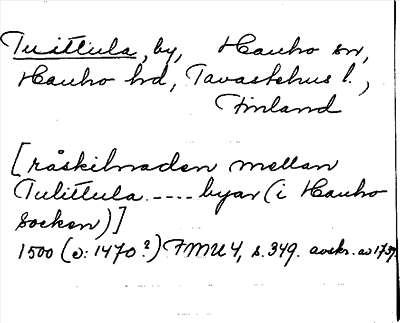 Tuittula, by, Hauho sn,
Hauho hd, Tavastehus l.,
Finland
[råskilnaden mellan
Tulittula ---- byar (i Hauho
socken)]
1500 (v: 1470?) FMU 4, s. 349. avskr. av 1737.